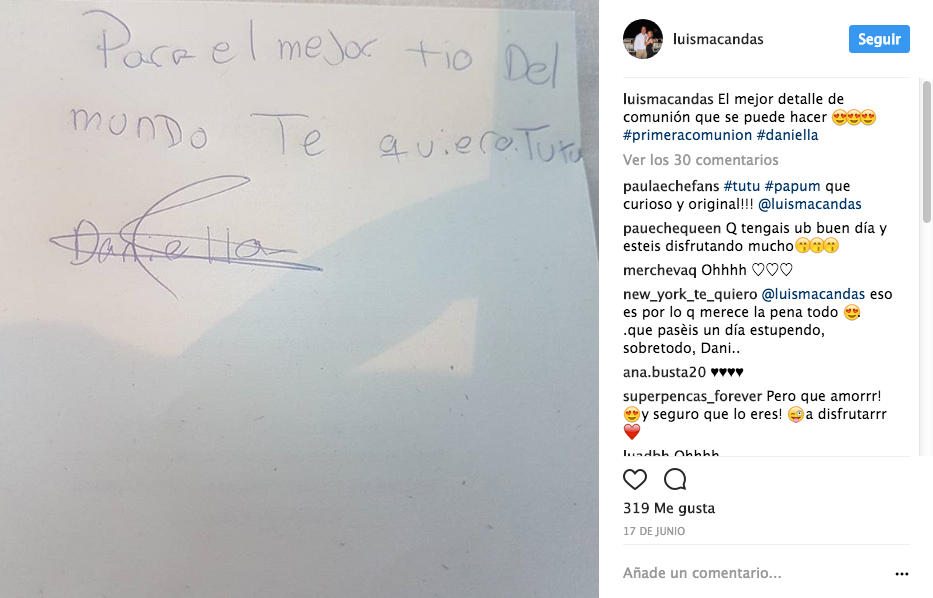 Para el mejor tio Del
mundo Te quiero.Tutu
Daniella
luismacandas
Seguir
luismacandas El mejor detalle de
comunión que se puede hacer 😍😍😍
#primeracomunion #daniella
Ver los 30 comentarios
paulaechefans #tutu #papum que
curioso y original!!! @luismacandas
pauechequeen Q tengais ub buen día y
esteis disfrutando mucho😙😙😙
merchevaq Ohhhh ♡♡♡
new_york_te_quiero @luismacandas eso
es por lo q merece la pena todo 😍.
.que pasèis un día estupendo,
sobretodo, Dani..
ana.busta20 ♥♥♥♥
superpencas_forever Pero que amorrr!
😍y seguro que lo eres! 😜a disfrutarrr
❤
luadbh Ohhhh
319 Me gusta
17 DE JUNIO
Añade un comentario...